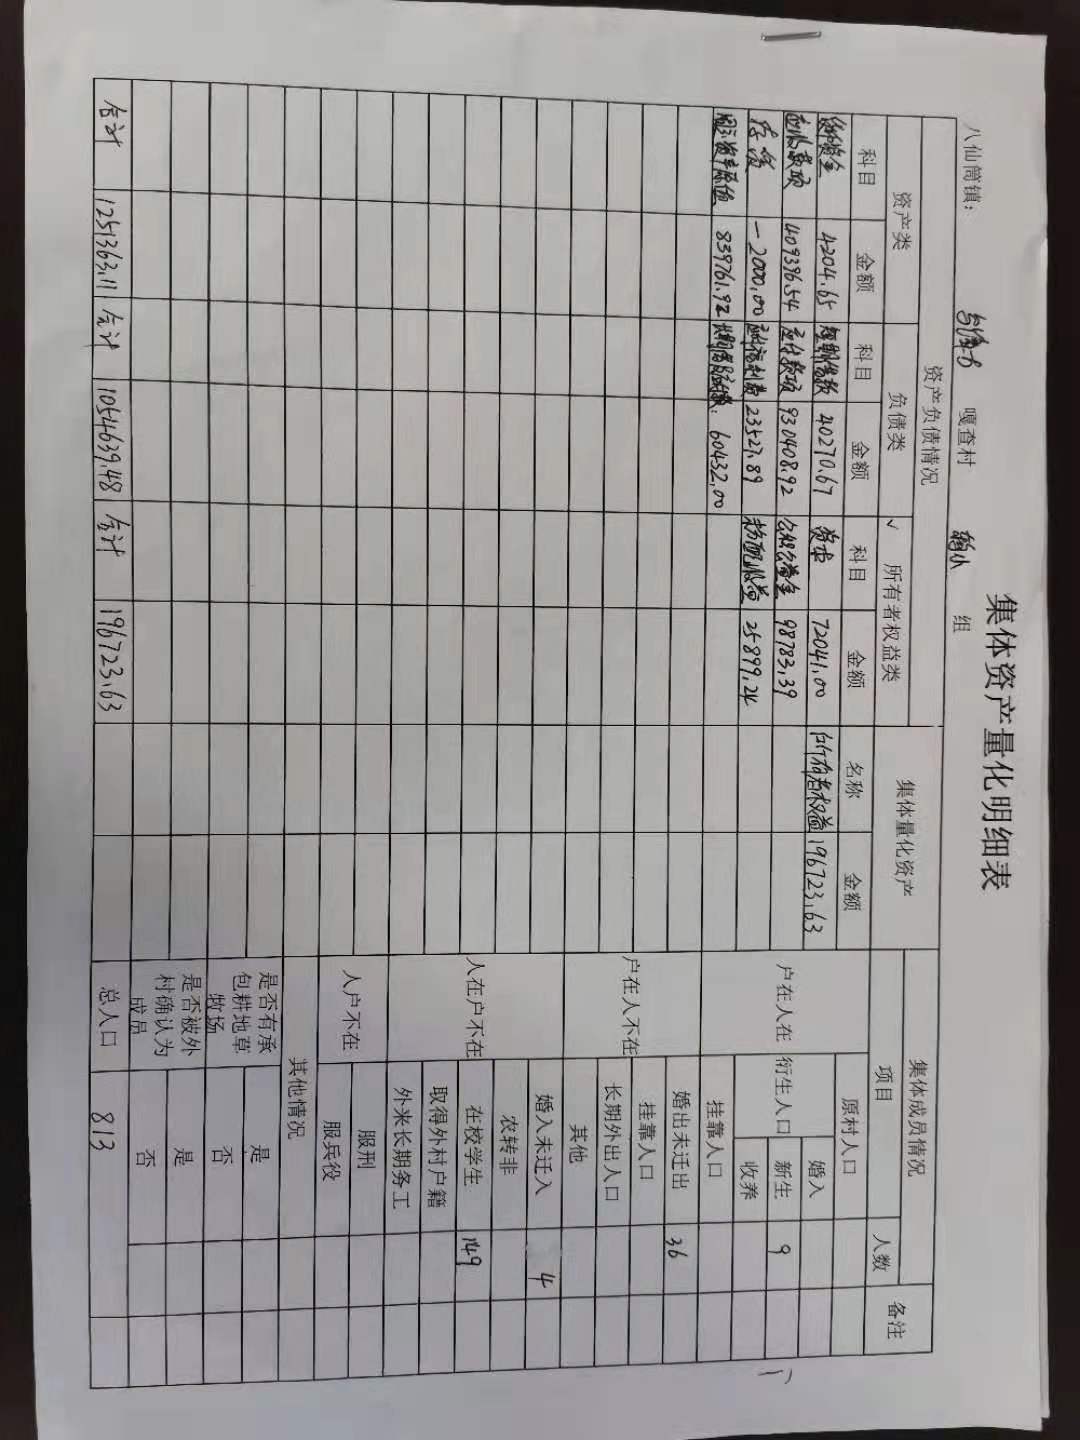 集体资产量化明细表
八仙筒镇： 嘎查村 组
资产负债情况 集体量化资产 集体成员情况 备注
资产类 负债类 √ 所有者权益类
科目 金额 科目 金额 科目 金额 名称 金额 项目 人数
4204.65 短期借款 40270.67 资本 72041.00 所有者权益 196723.63 户在人在 原村人口
应收款项 409396.54 应付款项 930408.92 公积公益金 98783.39 衍生人口 婚入
存货 -2000.00 应付福利费 23527.89 未分配收益 25899.24 新生 9
固定资产原值 839761.92 60432.00 收养
挂靠人口
户在人不在 婚出未迁出 36
挂靠人口
长期外出人口
其他
人在户不在 婚入未迁入 4
农转非
在校学生 149
取得外村户籍
外来长期务工
人户不在 服刑
服兵役
其他情况
是否有承包耕地草牧场 是
否
是否被外村确认为成员 是
否
合计 1251363.11 合计 1054639.48 合计 196723.63 总人口 813